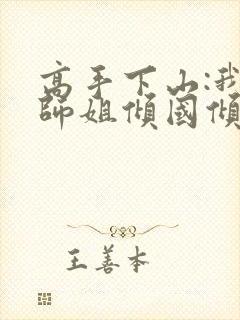 高手下山:我
師姐傾國傾
王善本